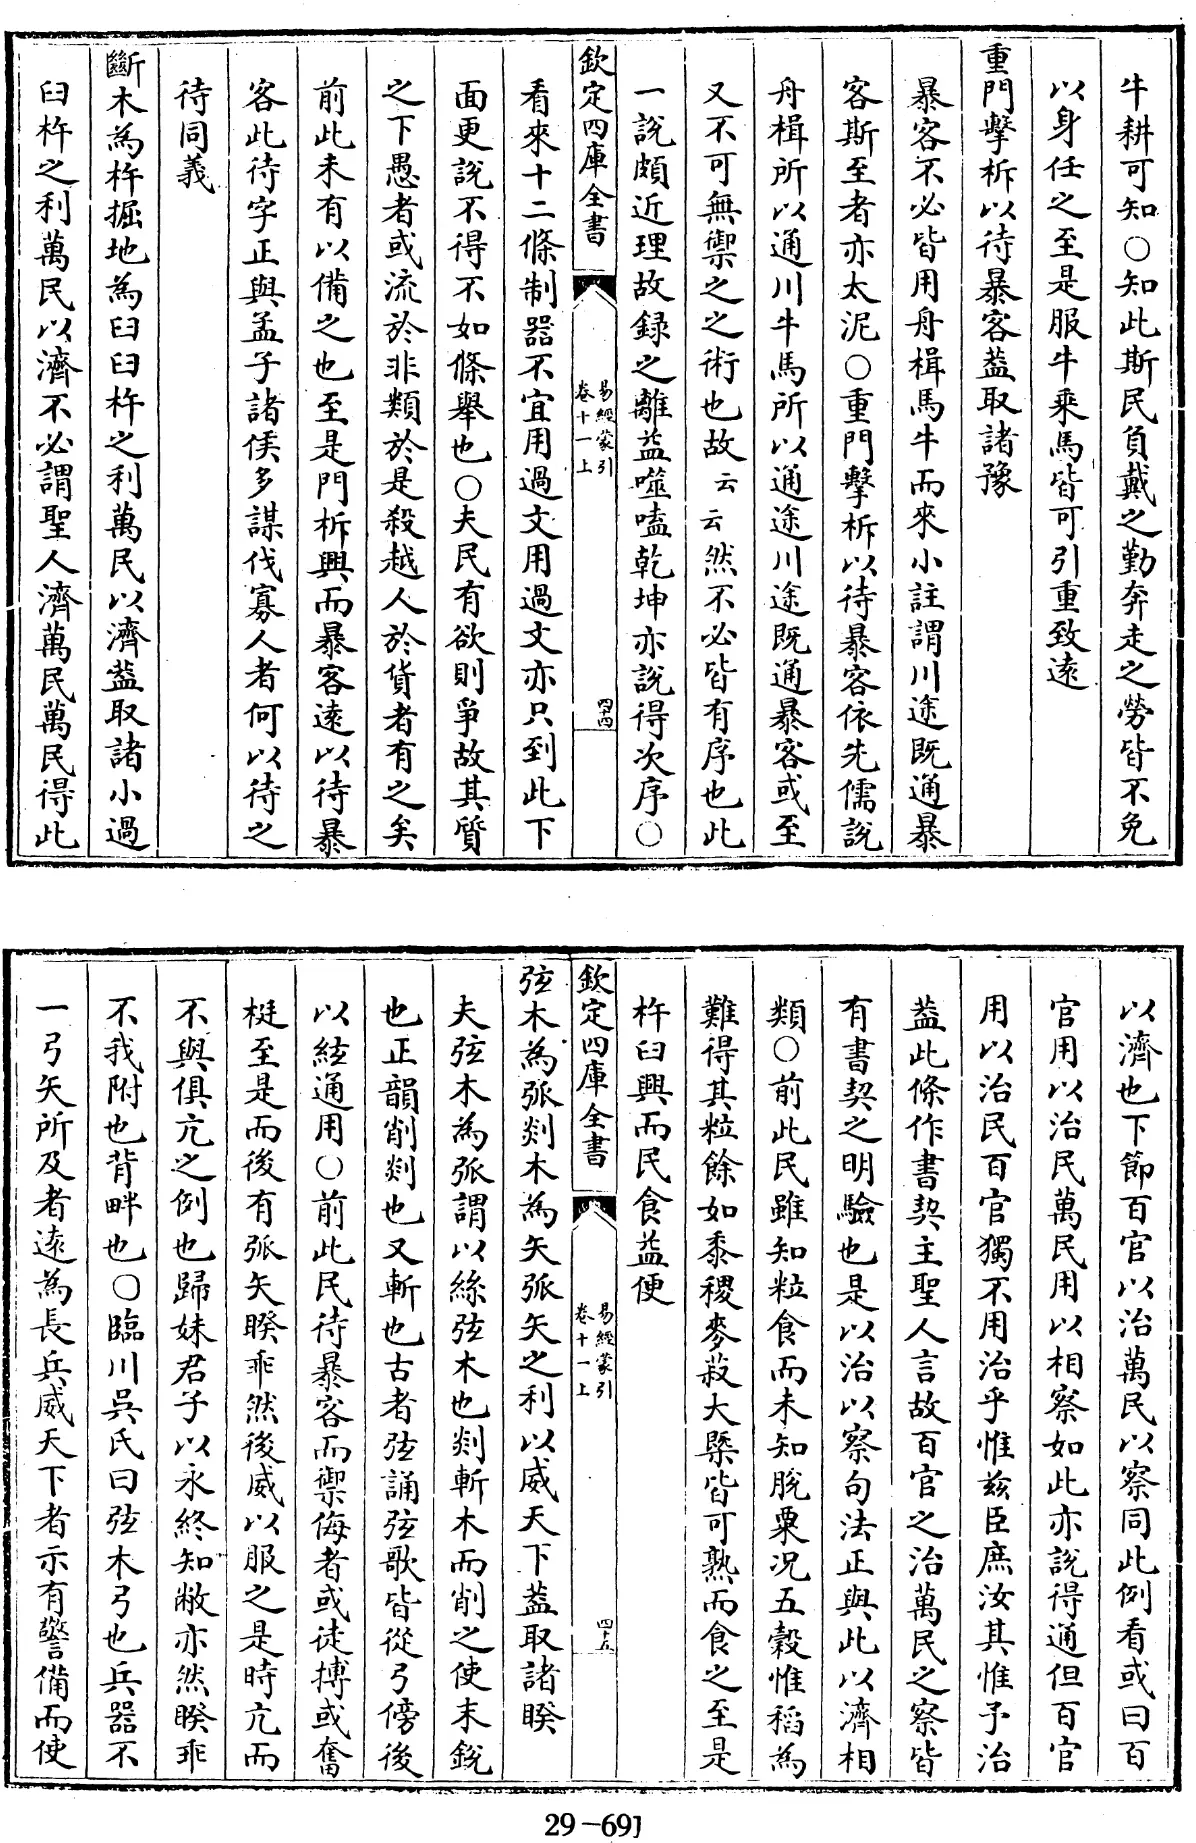 牛耕可知○知此斯民負戴之勤奔走之勞皆不免
以身任之至是服牛乘馬皆可引重致遠
重門擊柝以待暴客蓋取諸豫
暴客不必皆用舟楫馬牛而來小註謂川途既通暴
客斯至者亦太泥○重門擊柝以待暴客依先儒說
舟楫所以通川牛馬所以通途川途既通暴客或至
又不可無禦之之術也故云云然不必皆有序也此
一說頗近理故録之離益噬嗑乾坤亦說得次序○
欽定四庫全書
易經蒙引
卷十一上
四十四
看來十二條制器不宜用過文用過文亦只到此下
面更說不得不如條舉也○夫民有欲則爭故其質
之下愚者或流於非類於是殺越人於貨者有之矣
前此未有以備之也至是門柝興而暴客遠以待暴
客此待字正與孟子諸侯多謀伐寡人者何以待之
待同義
斷木為杵掘地為臼臼杵之利萬民以濟蓋取諸小過
臼杵之利萬民以濟不必謂聖人濟萬民萬民得此
以濟也下節百官以治萬民以察同此例看或曰百
官用以治民萬民用以相察如此亦說得通但百官
用以治民百官獨不用治乎惟兹臣庶汝其惟予治
蓋此條作書契主聖人言故百官之治萬民之察皆
有書契之明驗也是以治以察句法正與此以濟相
類○前此民雖知粒食而未知脫粟况五穀惟稻為
難得其粒餘如黍稷麥菽大槩皆可熟而食之至是
杵臼興而民食益便
欽定四庫全書
易經蒙引
卷十一上
四十五
弦木為弧剡木為矢弧矢之利以威天下蓋取諸睽
夫弦木為弧謂以絲弦木也剡斬木而削之使末銳
也正韻削剡也又斬也古者弦誦弦歌皆從弓傍後
以絃通用○前此民待暴客而禦侮者或徒搏或奮
梃至是而後有弧矢睽乖然後威以服之是時亢而
不與俱亢之例也歸妹君子以永終知敝亦然睽乖
不我附也背畔也○臨川吳氏曰弦木弓也兵器不
一弓矢所及者遠為長兵威天下者示有警備而使
29-691